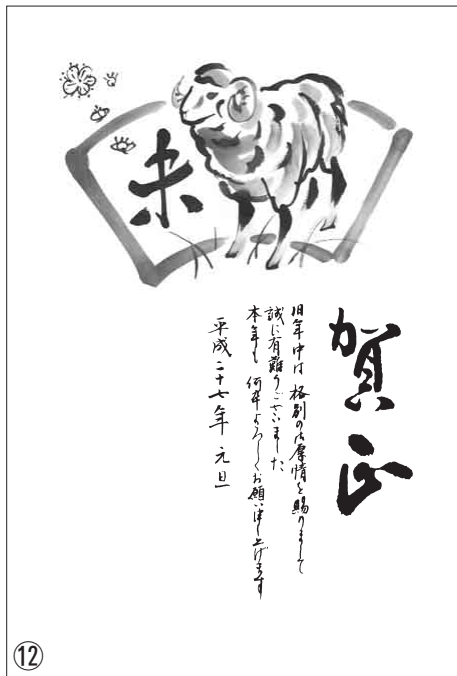 未
賀正
旧年中は 格別の御厚情を賜りまして
誠に有難うございました
本年も 何卒よろしくお願い申し上げます
平成二十七年 元旦
⑫